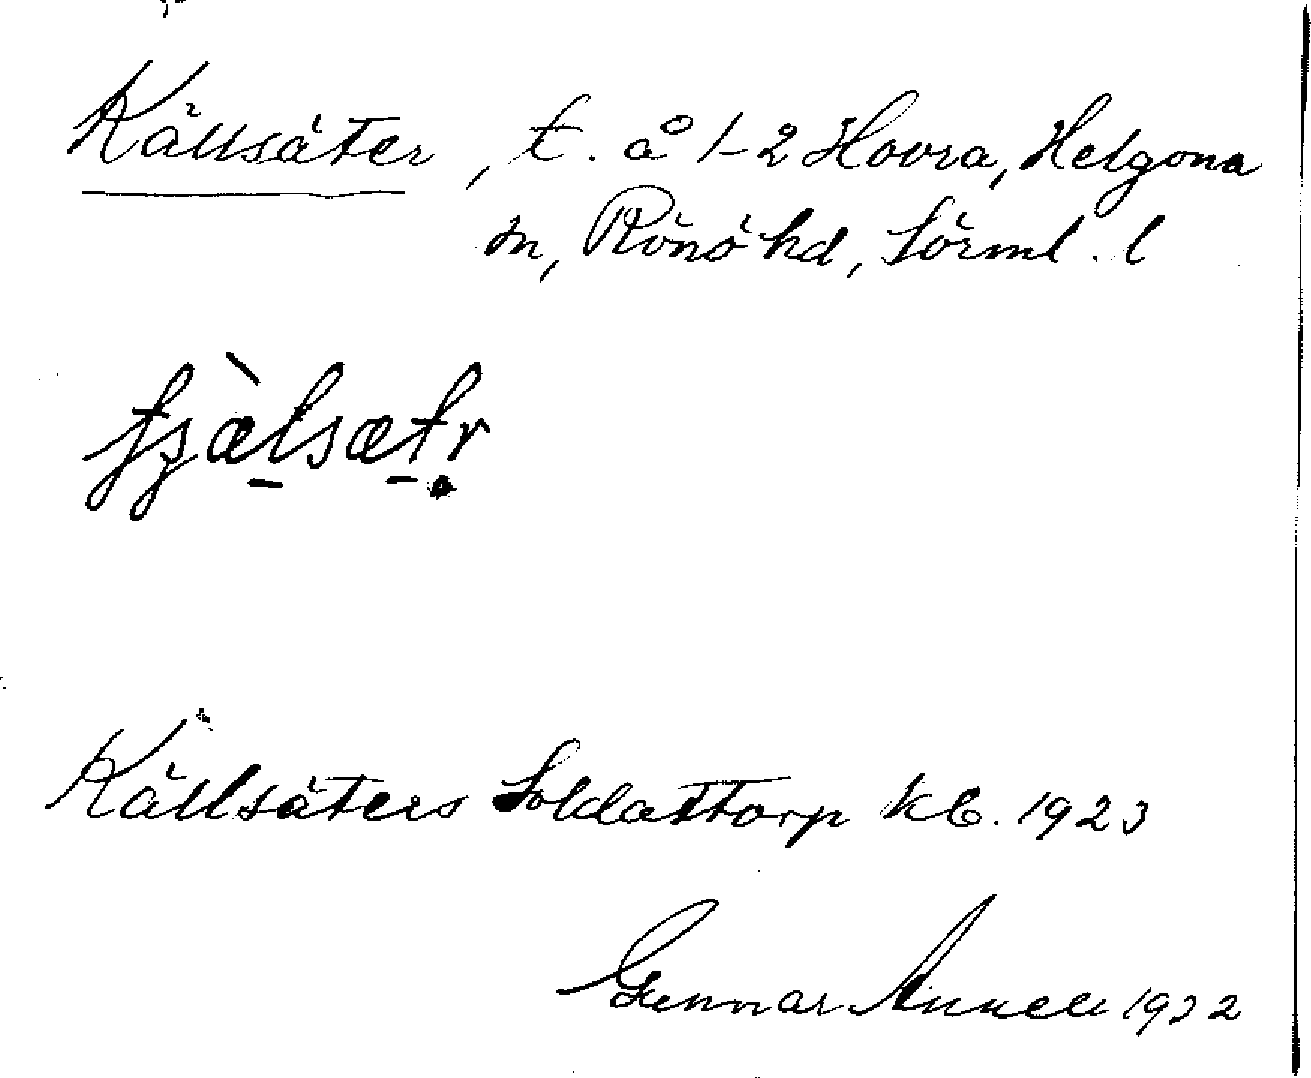 Källsäter, t. å 1-2 Hovra, Helgona
sn, Rönö hd, Sörml. l
Källsäters Soldattorp kb. 1923
Gunnar Annell 1932